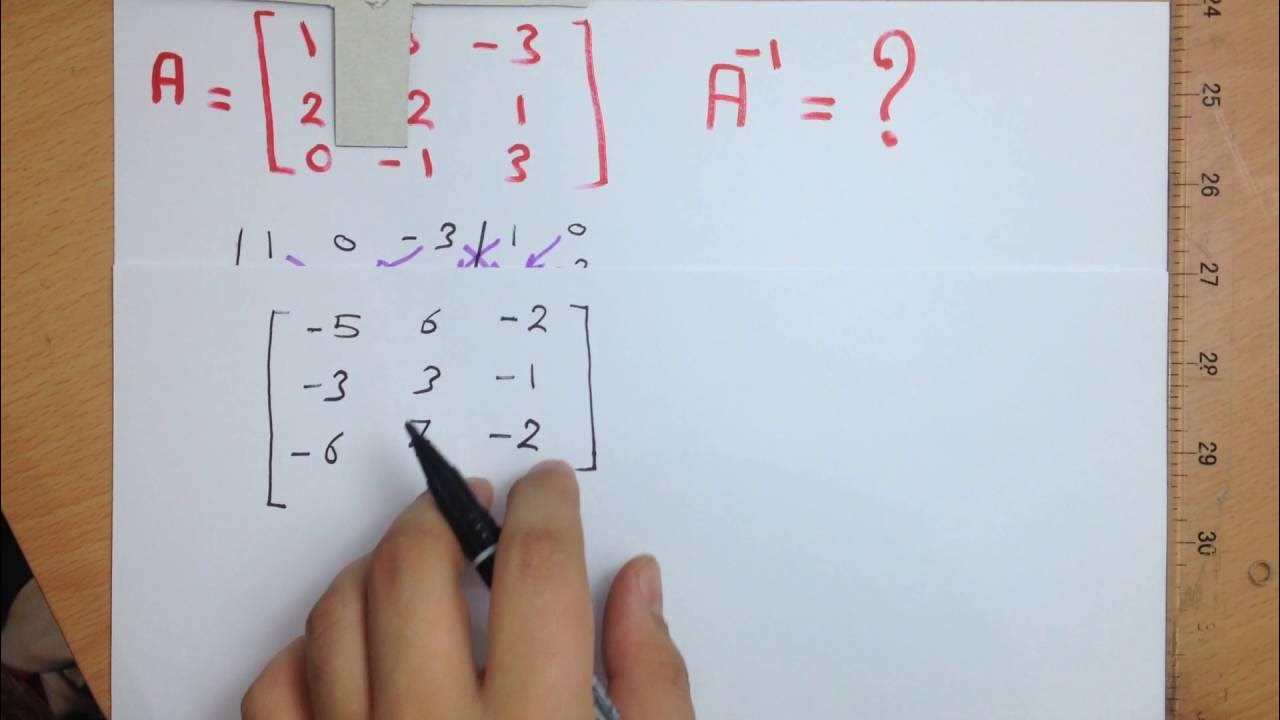 1 -3
A = 2 2 1
0 -1 3
A⁻¹ = ?
|1 0 -3 |1 0
-5 6 -2
-3 3 -1
-6 7 -2
24
25
26
27
28
29
30